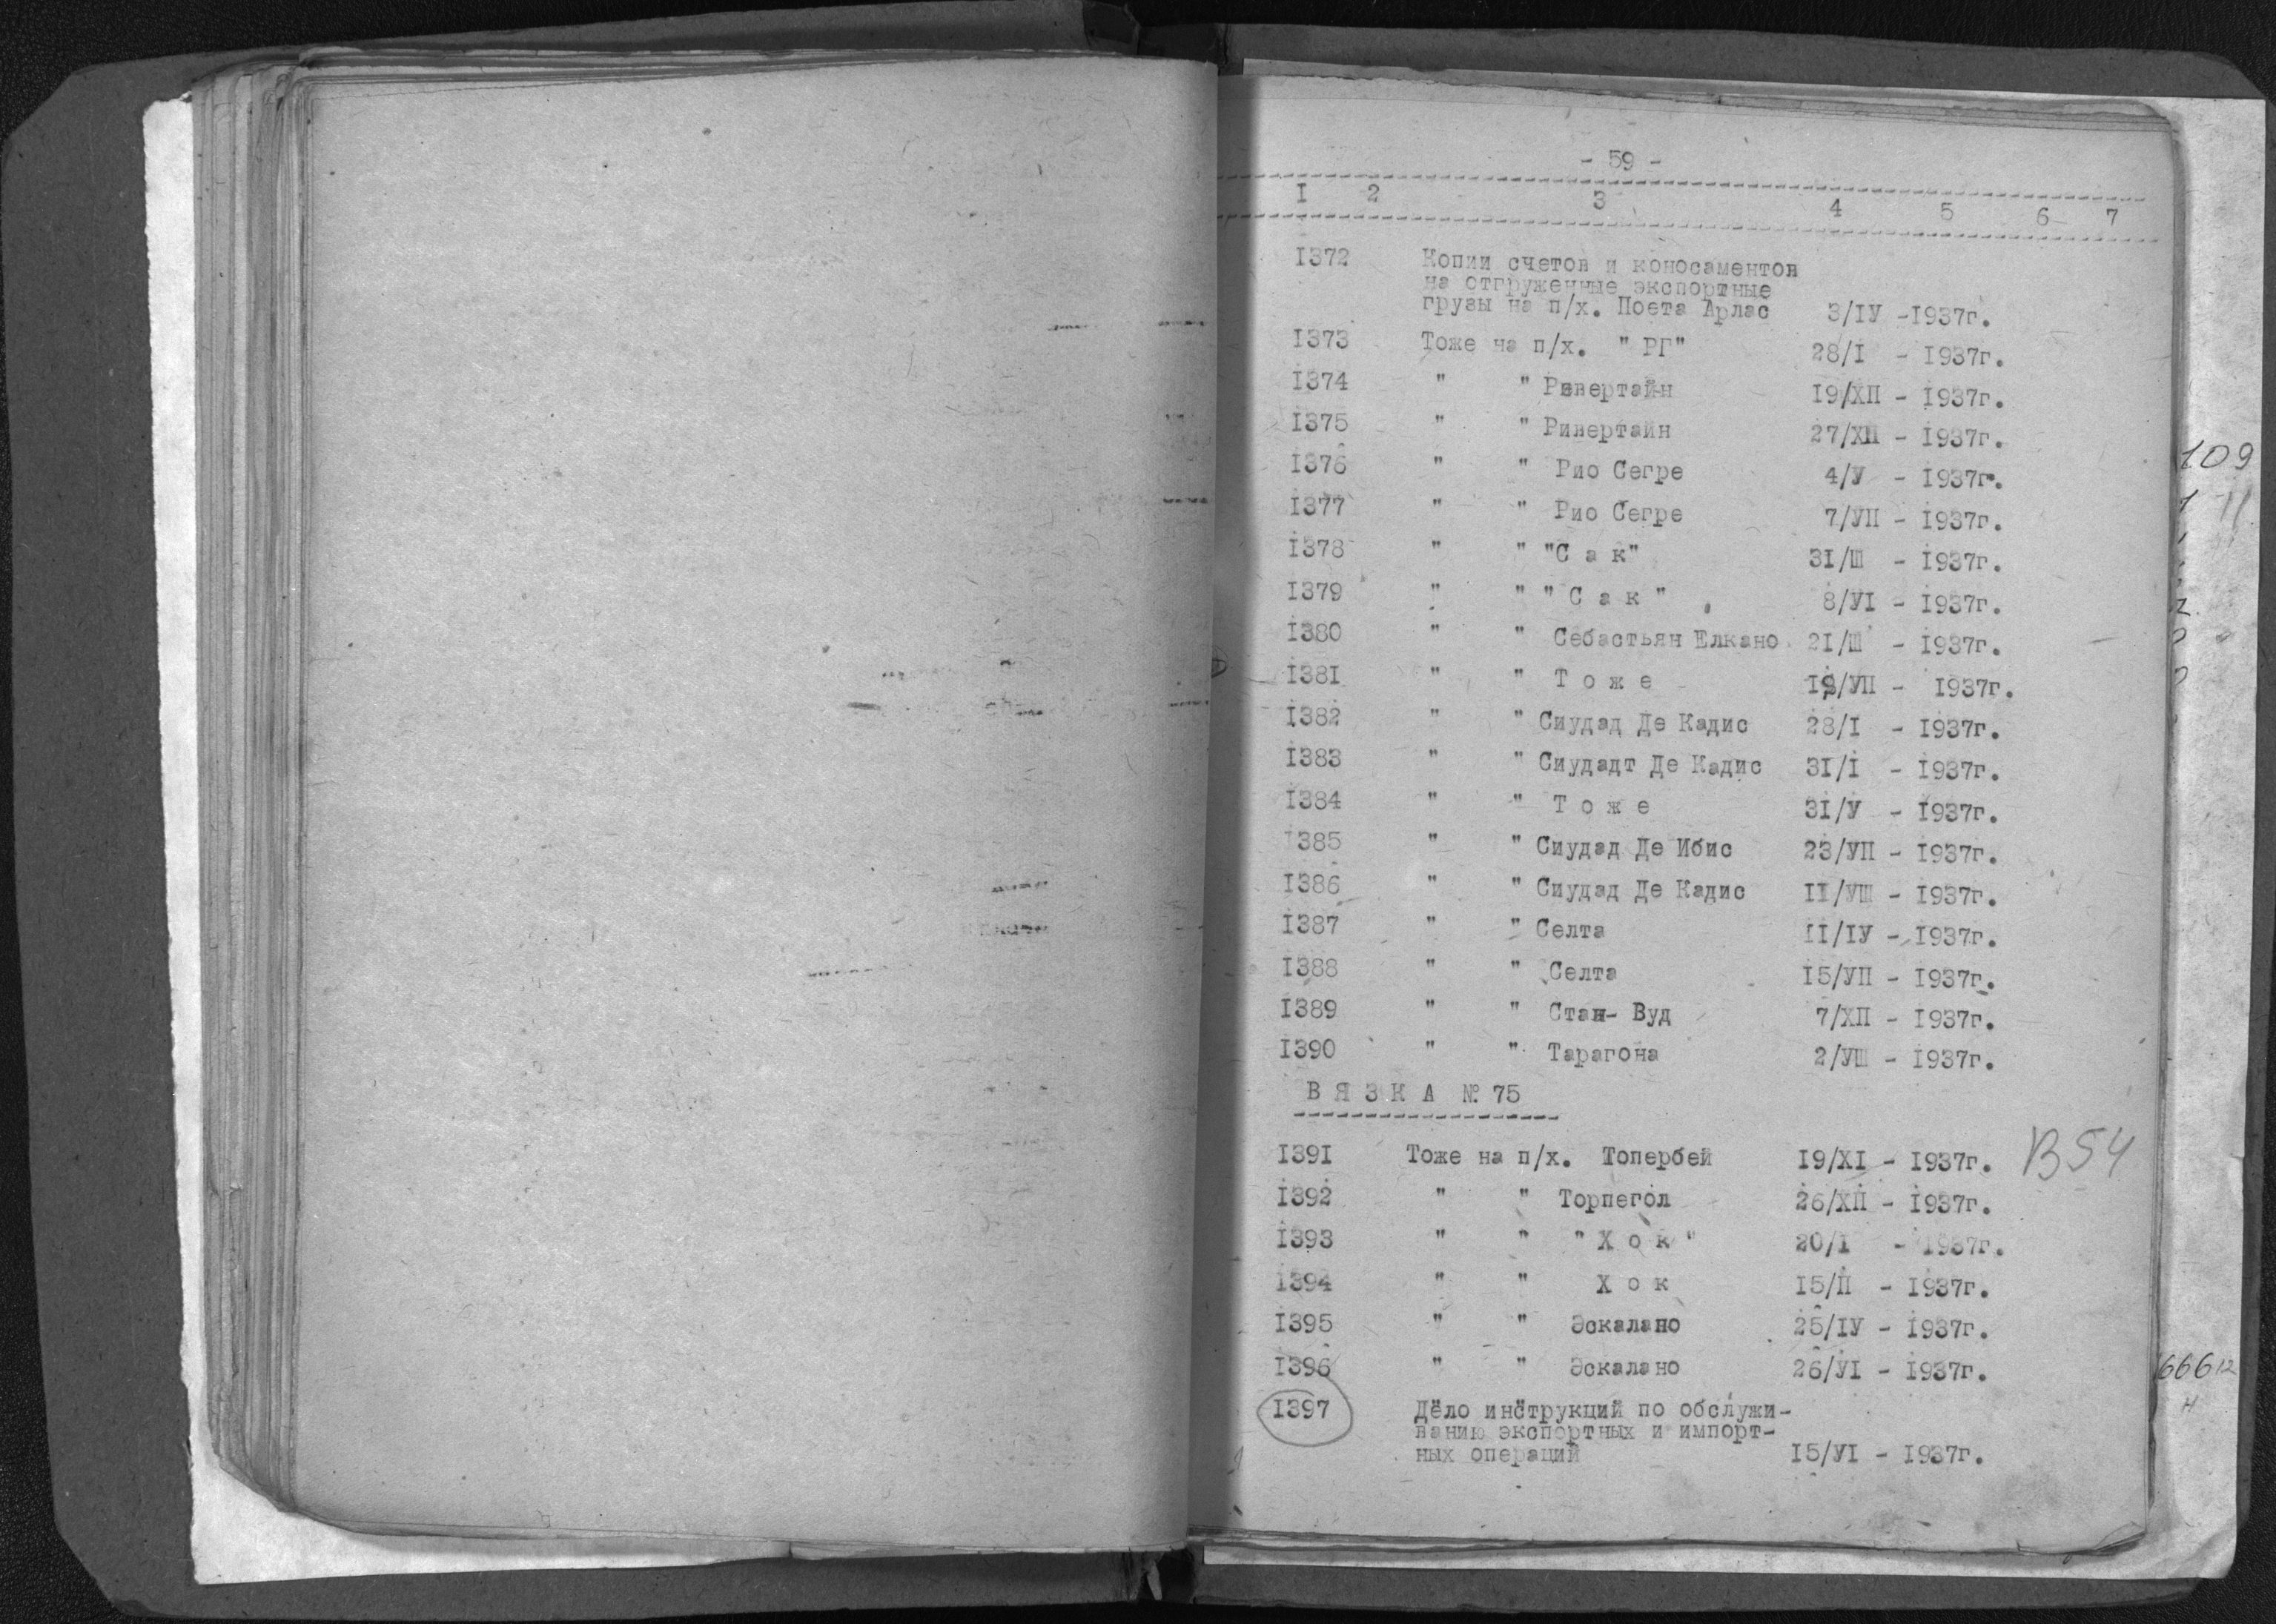 - 59 -
I 2 3 4 5 6 7
I372 Копии счетов и коносаментов
на отгруженные экспортные
грузы на п/х. Поета Арлас 3/IУ -I937г.
I373 Тоже на п/х. " РГ" 28/I - I937г.
I374 " " Ривертайн I9/ХП - I937г.
I375 " " Ривертайн 27/ХП - I937г.
I376 " " Рио Сегре 4/У - I937г.
I377 " " Рио Сегре 7/УП - I937г.
I378 " " "С а к" 3I/Ш - I937г.
I379 " " " С а к " 8/УI - I937г.
I380 " " Себастьян Елкано 2I/Ш - I937г.
I38I " " Т о ж е /УП - I937г.
I382 " " Сиудад Де Кадис 28/I - I937г.
I383 " " Сиудадт Де Кадис 3I/I - I937г.
I384 " " Т о ж е 3I/У - I937г.
I385 " " Сиудад Де Ибис 23/УП - I937г.
I386 " " Сиудад Де Кадис II/УШ - I937г.
I387 " " Селта II/IУ - I937г.
I388 " " Селта I5/УП - I937г.
I389 " " Стан- Вуд 7/ХП - I937г.
I390 " " Тарагона 2/УШ - I937г.
В Я З К А № 75
I39I Тоже на п/х. Топербей I9/ХI - I937г. В 54
I392 " " Торпегол 26/ХП - I937г.
I393 " " " Х о к " 20/I - I937г.
I394 " " Х о к I5/П - I937г.
I395 " " Эскалано 25/IУ - I937г.
I396 " " Эскалано 26/УI - I937г.
I397 Дело инструкций по обслужи-
ванию экспортных и импорт-
ных операций I5/УI - I937г.
109